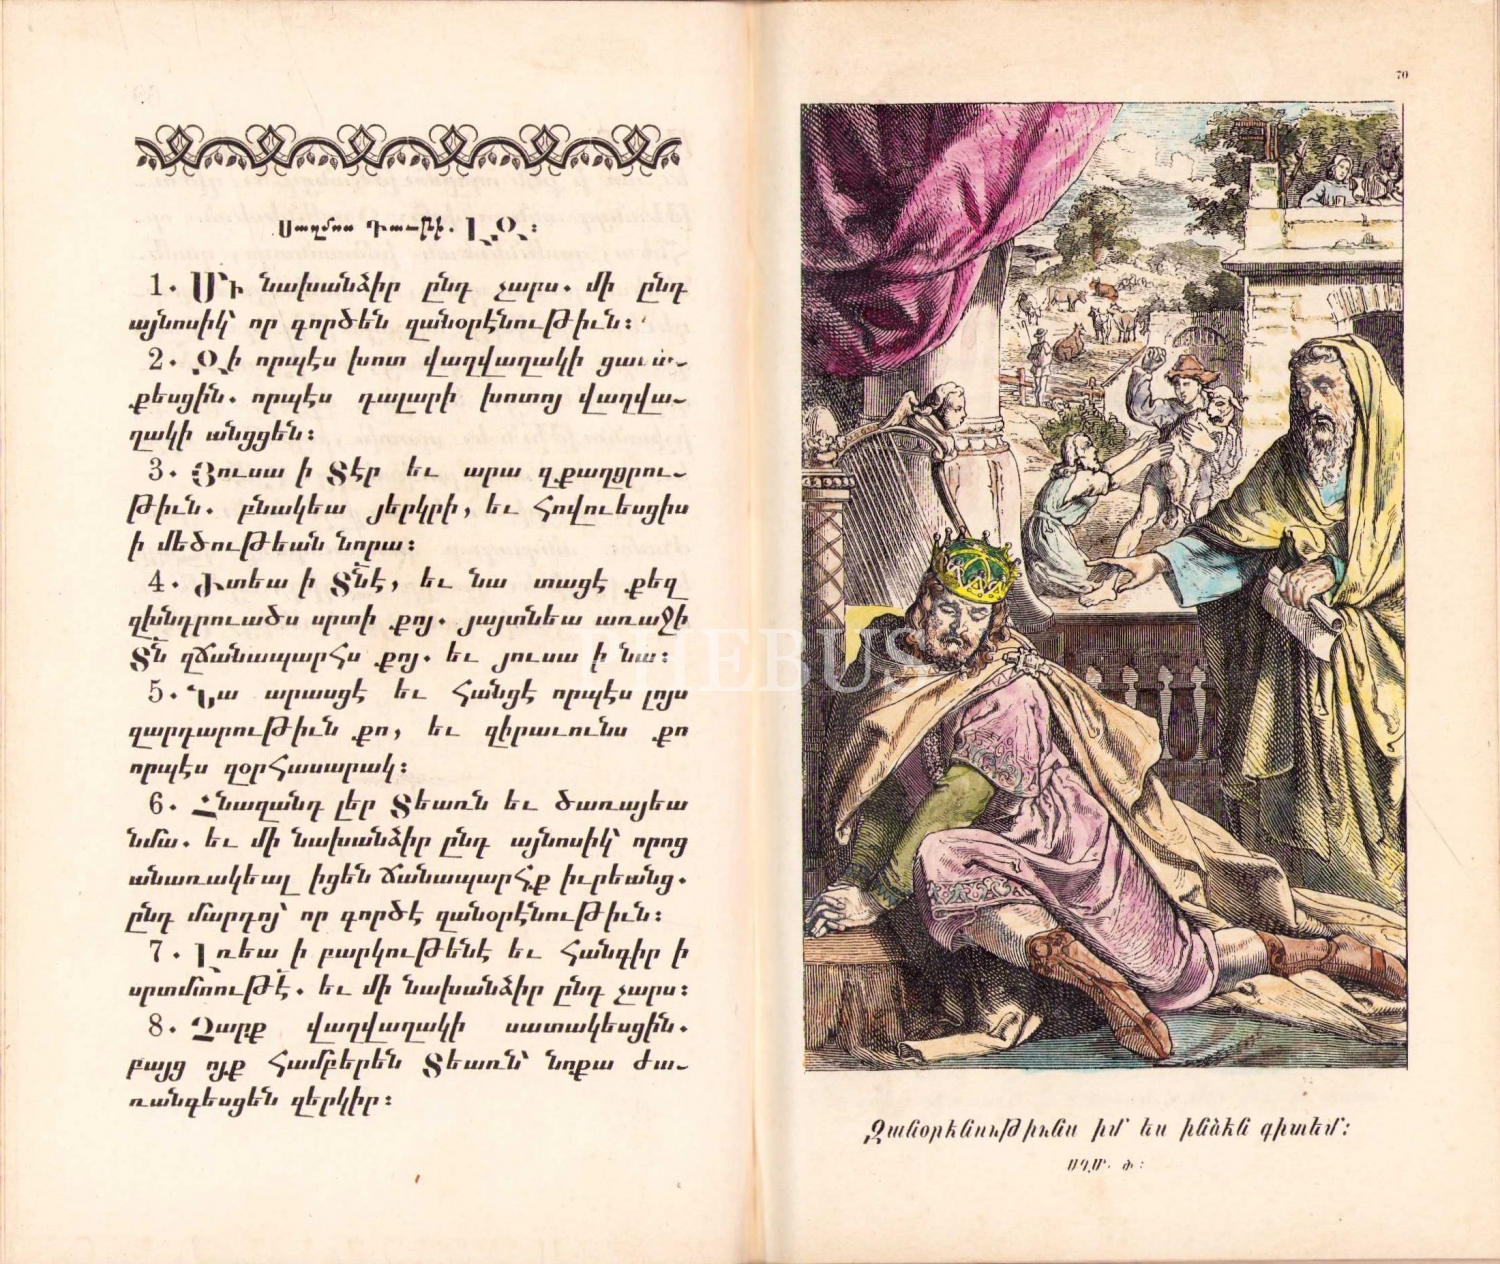 Սաղմոս Դաւթի. ԼԶ:
1. Մի նախանձիր ընդ չարս. մի ընդ
այնոսիկ՝ որ գործեն զանօրէնութիւն:
2. Զի որպէս խոտ վաղվաղակի ցամա-
քեսցին. որպէս դալարի խոտոյ վաղվա-
ղակի անցցեն:
3. Յուսա ի Տէր եւ արա զքաղցրու-
թիւն. բնակեա յերկրի, եւ հովուեսցիս
ի մեծութեան նորա:
4. Խտեա ի Տնէ, եւ նա տացէ քեզ
զխնդրուածս սրտի քոյ. յայտնեա առաջի
Տն զճանապարհս քոյ. եւ յուսա ի նա:
5. Նա արասցէ եւ հանցէ որպէս լոյս
զարդարութիւն քո, եւ զիրաւունս քո
որպէս զօրհասարակ:
6. Հնազանդ լեր Տեառն եւ ծառայեա
նմա. եւ մի նախանձիր ընդ այնոսիկ՝ որոց
անառակեալ իցեն ճանապարհք իւրեանց.
ընդ մարդոյ՝ որ գործէ զանօրէնութիւն:
7. Լռեա ի բարկութենէ եւ հանգիր ի
սրտմտութէ. եւ մի նախանձիր ընդ չարս:
8. Չարք վաղվաղակի սատակեսցին.
բայց ոյք համբերեն Տեառն՝ նոքա ժա-
ռանգեսցեն զերկիր:
70
Զանօրէնութիւնս իմ ես ինձէն գիտեմ:
ՍՂՄ. Ծ:
PHEBUS